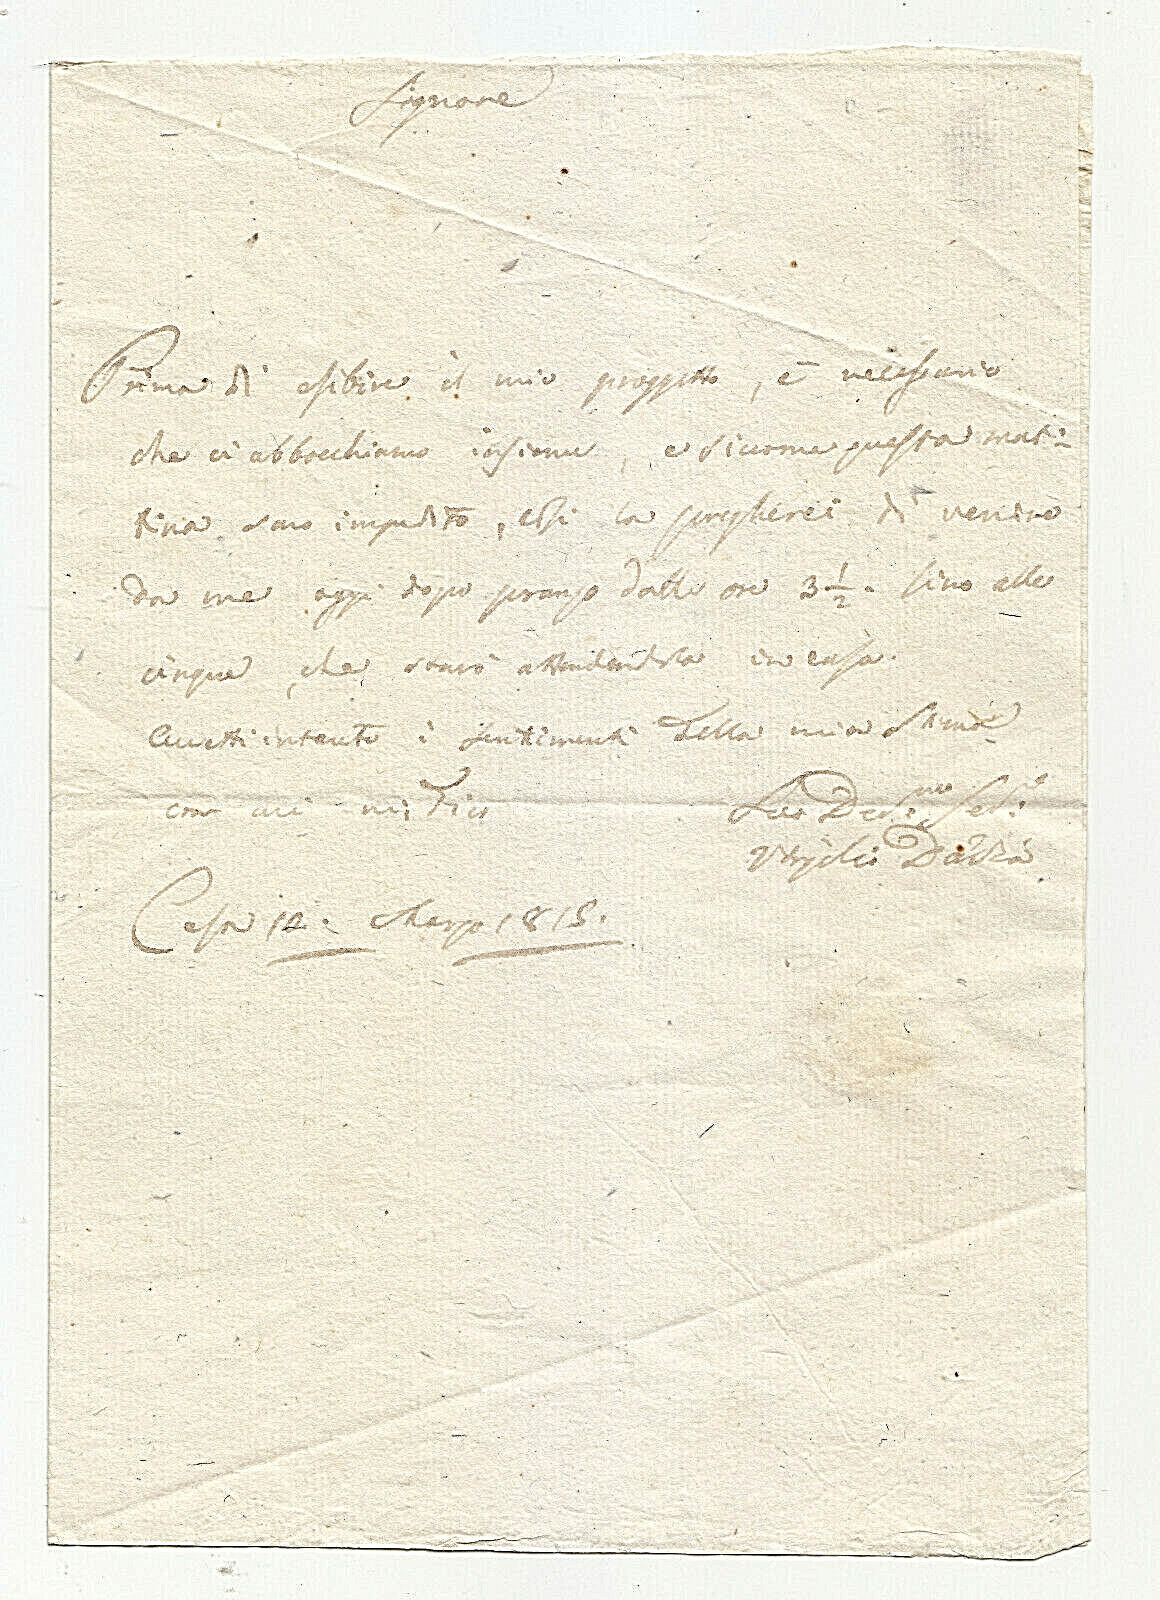 Signore
Prima di esibire il mio proggetto, è necessario
che ci abbocchiamo insieme, e siccome questa mat-
tina sarò impedito, così la pregherei di venire
da me oggi dopo pranzo dalle ore 3 1/2. sino alle
cinque, che sarò attendendola in casa.
Accetti intanto i sentimenti della mia stima
con cui mi dico
Suo Dev.mo Ser.e
Casa 12. Marzo 1818.